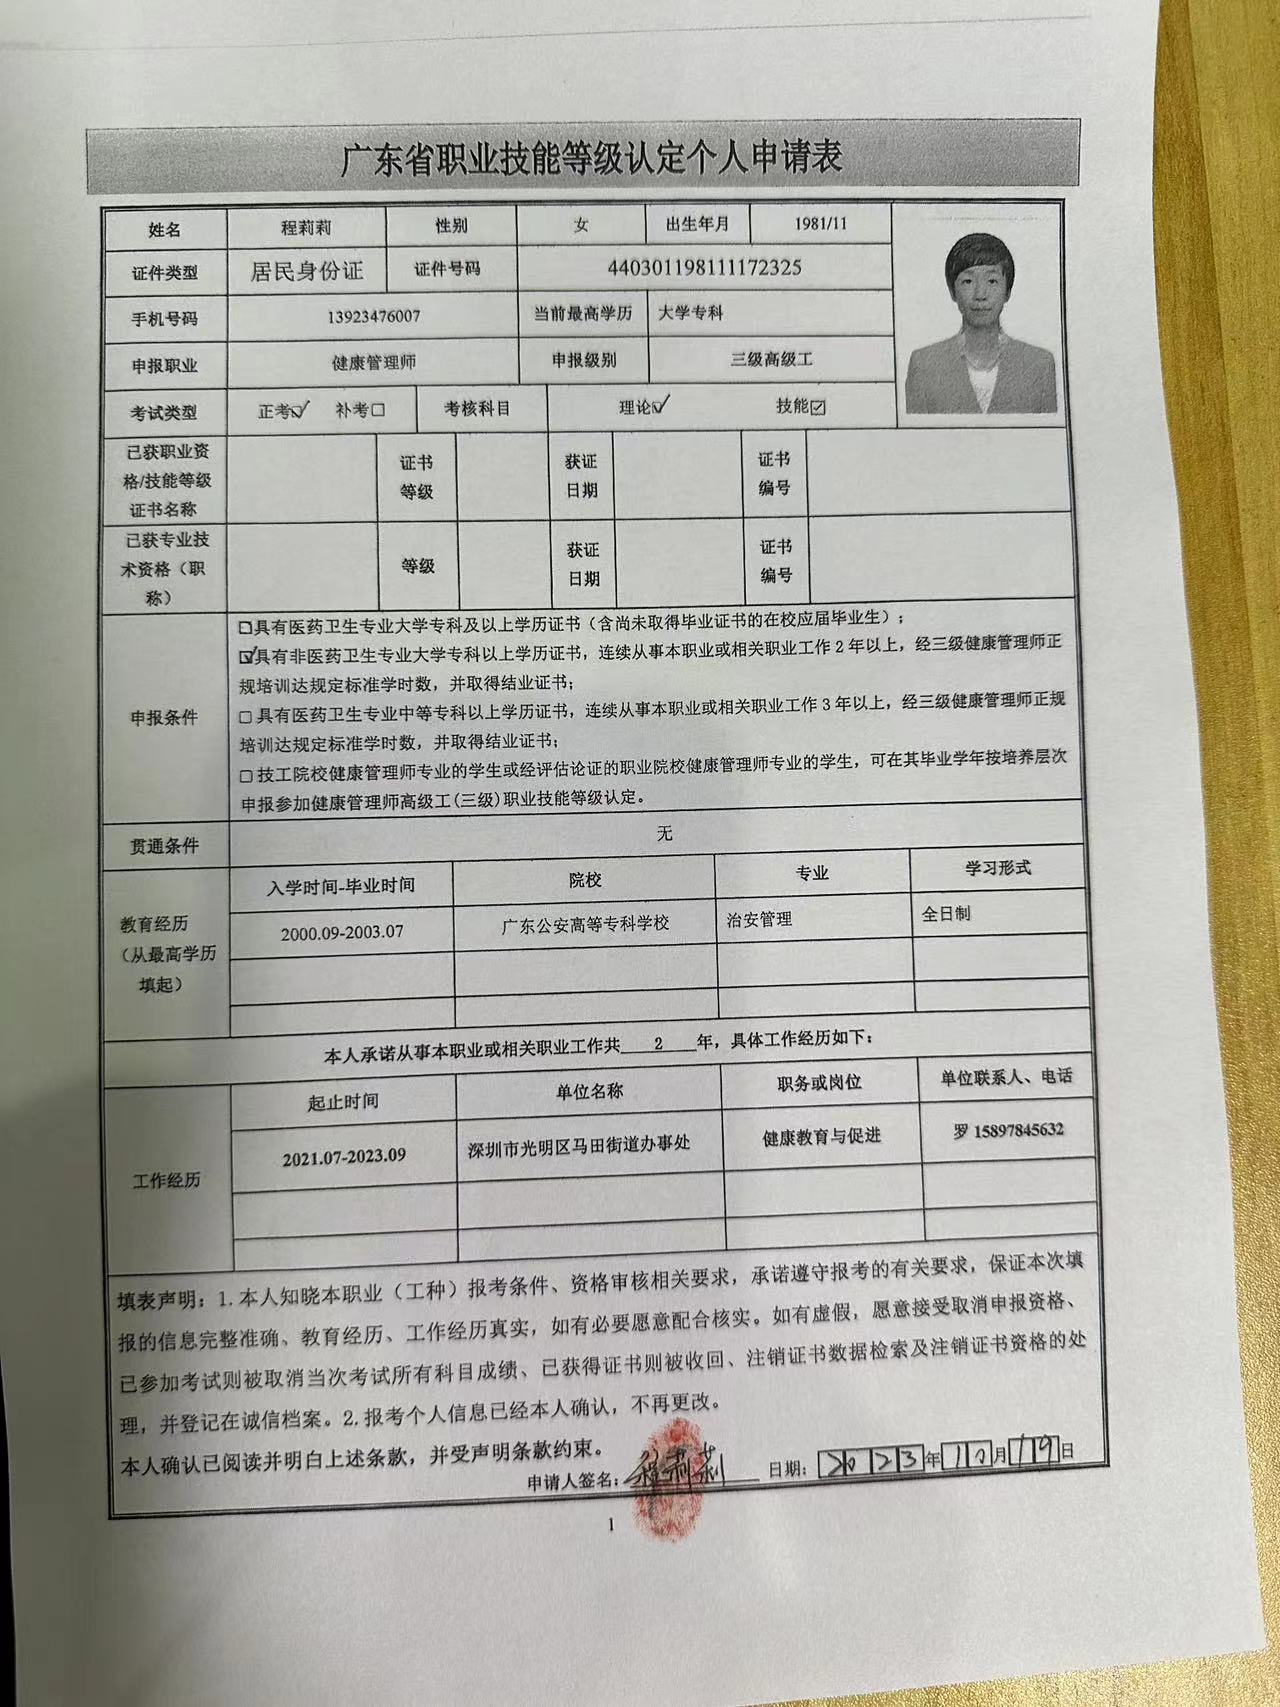 广东省职业技能等级认定个人申请表
姓名 程莉莉 性别 女 出生年月 1981/11
证件类型 居民身份证 证件号码 440301198111172325
手机号码 13923476007 当前最高学历 大学专科
申报职业 健康管理师 申报级别 三级高级工
考试类型 正考☑ 补考□ 考核科目 理论☑ 技能☑
已获职业资格/技能等级证书名称 证书等级 获证日期 证书编号
已获专业技术资格（职称） 等级 获证日期 证书编号
申报条件
□具有医药卫生专业大学专科及以上学历证书（含尚未取得毕业证书的在校应届毕业生）；
☑具有非医药卫生专业大学专科以上学历证书，连续从事本职业或相关职业工作2年以上，经三级健康管理师正
规培训达规定标准学时数，并取得结业证书；
□具有医药卫生专业中等专科以上学历证书，连续从事本职业或相关职业工作3年以上，经三级健康管理师正规
培训达规定标准学时数，并取得结业证书；
□技工院校健康管理师专业的学生或经评估论证的职业院校健康管理师专业的学生，可在其毕业学年按培养层次
申报参加健康管理师高级工(三级)职业技能等级认定。
贯通条件 无
教育经历（从最高学历填起）
入学时间-毕业时间 院校 专业 学习形式
2000.09-2003.07 广东公安高等专科学校 治安管理 全日制
本人承诺从事本职业或相关职业工作共 2 年，具体工作经历如下：
工作经历
起止时间 单位名称 职务或岗位 单位联系人、电话
2021.07-2023.09 深圳市光明区马田街道办事处 健康教育与促进 罗 15897845632
填表声明：1.本人知晓本职业（工种）报考条件、资格审核相关要求，承诺遵守报考的有关要求，保证本次填
报的信息完整准确、教育经历、工作经历真实，如有必要愿意配合核实。如有虚假，愿意接受取消申报资格、
已参加考试则被取消当次考试所有科目成绩、已获得证书则被收回、注销证书数据检索及注销证书资格的处
理，并登记在诚信档案。2.报考个人信息已经本人确认，不再更改。
本人确认已阅读并明白上述条款，并受声明条款约束。
申请人签名：程莉莉 日期：2023年10月19日
1